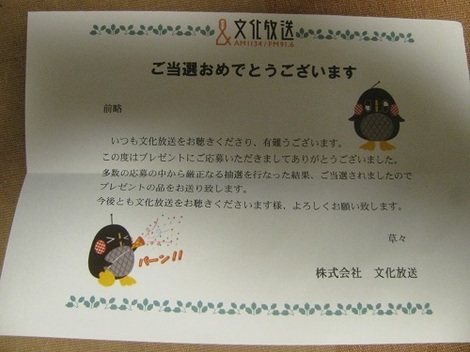 文化放送
AM1134/FM91.6
ご当選おめでとうございます
前略
いつも文化放送をお聴きくださり、有難うございます。
この度はプレゼントにご応募いただきましてありがとうございました。
多数の応募の中から厳正なる抽選を行なった結果、ご当選されましたので
プレゼントの品をお送り致します。
今後とも文化放送をお聴きくださいます様、よろしくお願い致します。
草々
パーン!!
株式会社 文化放送